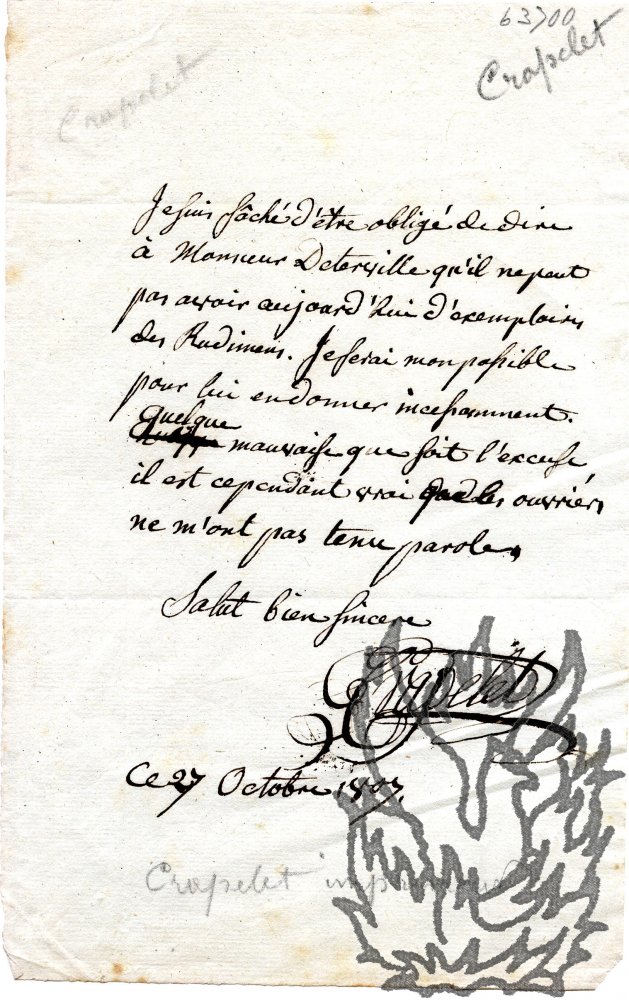 63700
Crapelet
Crapelet
Je suis fâché d'être obligé de dire
à Monsieur Deterville qu'il ne peut
pas avoir aujourd'hui d'exemplaires
des Rudimens. Je ferai mon possible
pour lui en donner incessamment.
Quelque
mauvaise que soit l'excuse
il est cependant vrai que les ouvriers
ne m'ont pas tenu parole,
Salut bien sincere
Crapelet
Ce 27 Octobre 1807.
Crapelet